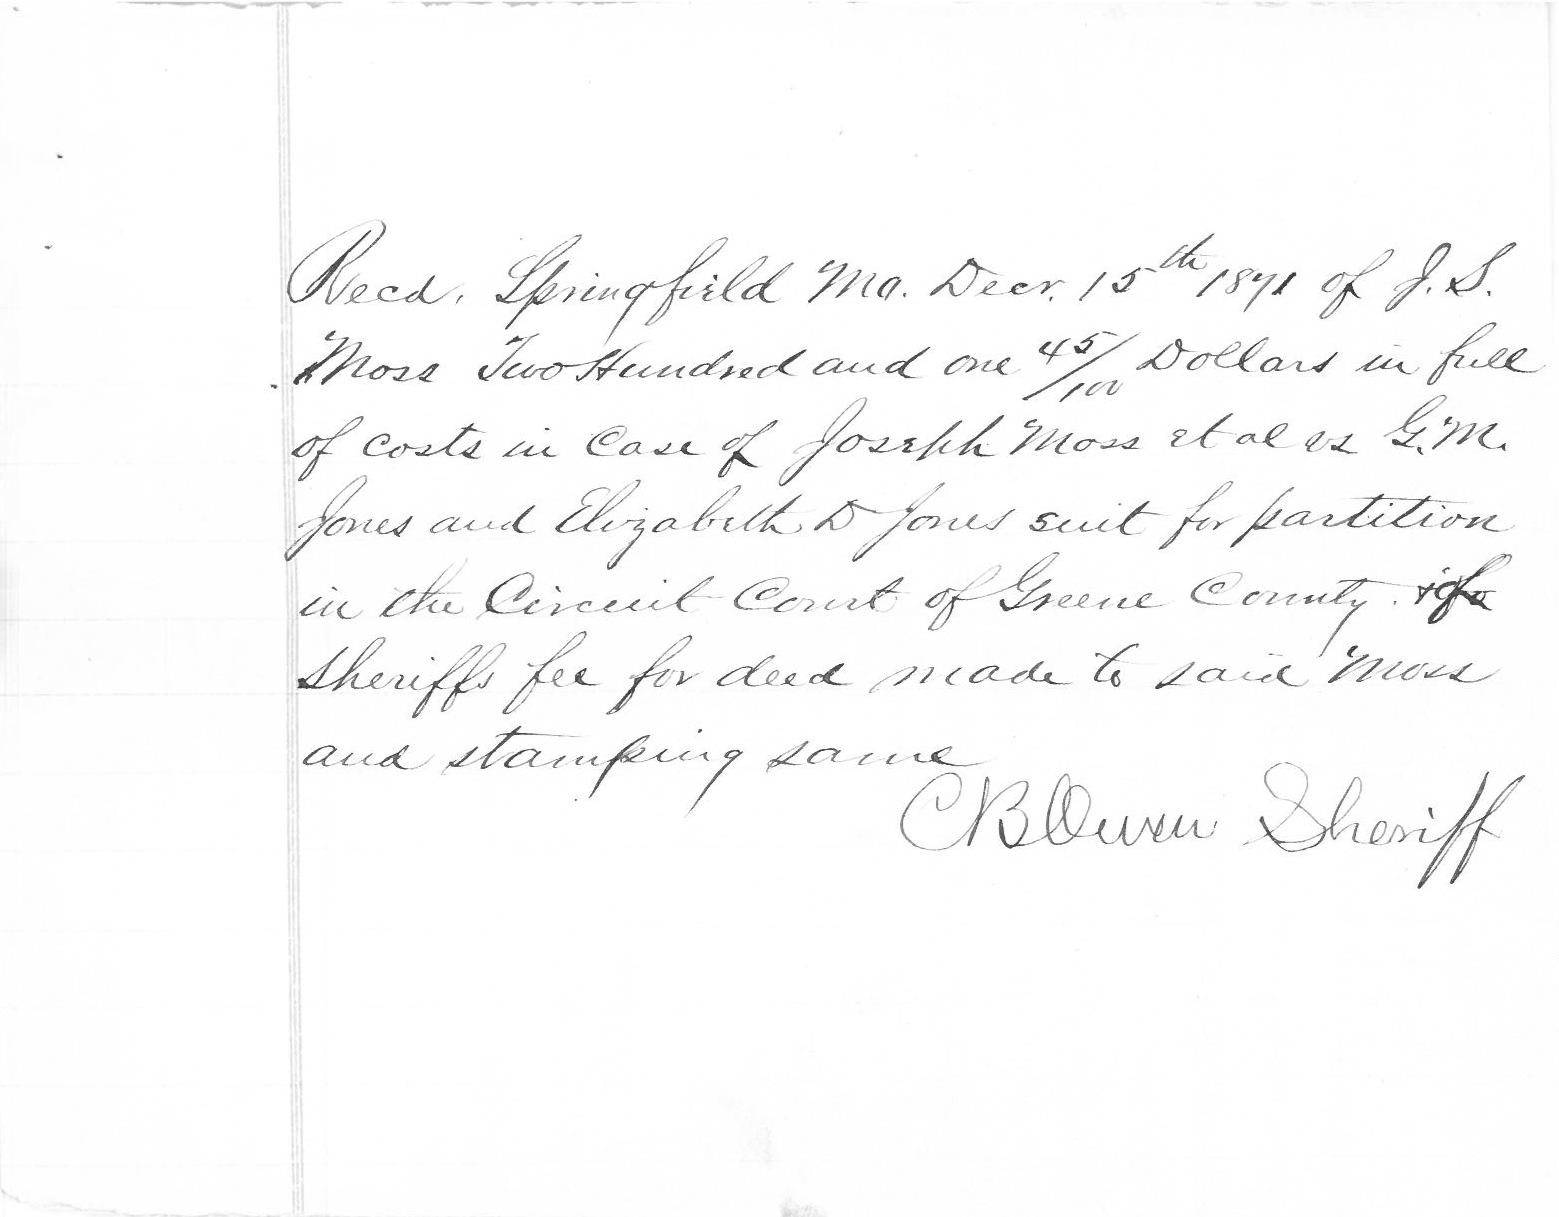 Recd. Springfield Mo. Decr. 15th 1871 of J. S.
Moss Two Hundred and one 45/100 Dollars in full
of costs in Case of Joseph Moss et al vs G. M.
Jones and Elizabeth D Jones suit for partition
in the Circuit Court of Greene County.
sheriffs fee for deed made to said Moss
and stamping same
C B Owen Sheriff